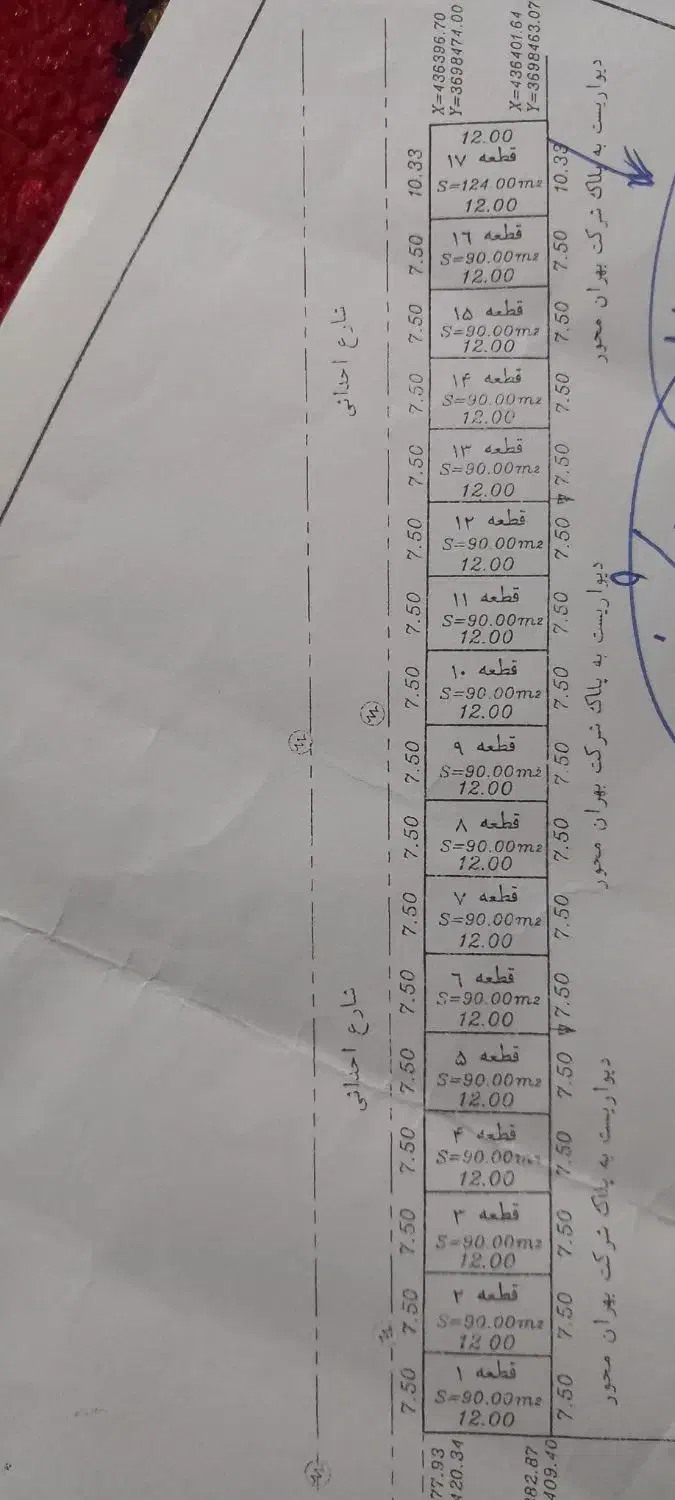 X=436396.70
Y=3698474.00
X=436401.64
Y=3698463.07
12.00
قطعه ۱۷
S=124.00m2
12.00
10.33
10.33
قطعه ۱۶
S=90.00m2
12.00
7.50
7.50
قطعه ۱۵
S=90.00m2
12.00
7.50
7.50
قطعه ۱۴
S=90.00m2
12.00
7.50
7.50
قطعه ۱۳
S=90.00m2
12.00
7.50
7.50
قطعه ۱۲
S=90.00m2
12.00
7.50
7.50
قطعه ۱۱
S=90.00m2
12.00
7.50
7.50
قطعه ۱۰
S=90.00m2
12.00
7.50
7.50
قطعه ۹
S=90.00m2
12.00
7.50
7.50
قطعه ۸
S=90.00m2
12.00
7.50
7.50
قطعه ۷
S=90.00m2
12.00
7.50
7.50
قطعه ۶
S=90.00m2
12.00
7.50
7.50
قطعه ۵
S=90.00m2
12.00
7.50
7.50
قطعه ۴
S=90.00m2
12.00
7.50
7.50
قطعه ۳
S=90.00m2
12.00
7.50
7.50
قطعه ۲
S=90.00m2
12.00
7.50
7.50
قطعه ۱
S=90.00m2
12.00
7.50
7.50
77.93
420.34
382.87
409.40
شارع احداثی
شارع احداثی
دیواریست به پلاک شرکت بهران محور
دیواریست به پلاک شرکت بهران محور
دیواریست به پلاک شرکت بهران محور